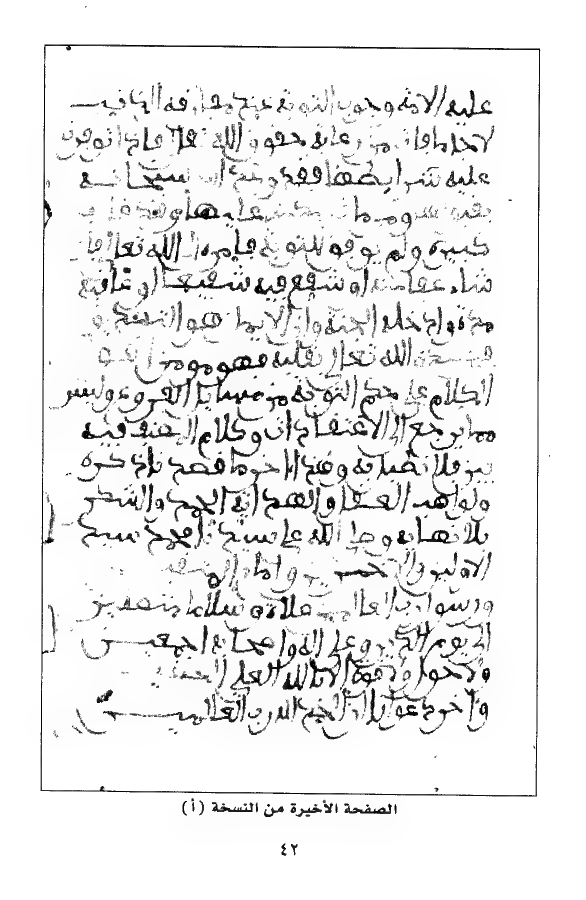 عليه الامة وجوب التوبة عند مقارفة الذنب
لاجل ما فات من رعاية حقوق الله تعالى فاذا توفرت
عليه شرايطها فقد وعد الله سبحانه
كبيرة ولم يوفق للتوبة فامره الى الله تعالى فان
شاء عفا عنه او شفع فيه شفيعا او عاقبه
مدة وادخله الجنة وان الايمان هو التصديق
الله تعالى بقلبه فهو مومن
الكلام على حكم التوبة من مسايل الفروع وليس
مما يرجع الى الاعتقادات وكلام المصنف فيه
بين فلا نطيل به وهذا اخر ما قصدنا ذكره
ولواهب العقل والهداية الحمد والشكر
بلا نهاية وصلى الله على سيدنا محمد سيد
الاولين والاخرين وامام المتقين
ورسول رب العالمين صلاة وسلاما متصلين
الى يوم الدين وعلى اله واصحابه اجمعين
ولا حول ولا قوة الا بالله العلي العظيم
واخر دعوانا ان الحمد لله رب العالمين
الصفحة الأخيرة من النسخة (أ)
٤٢